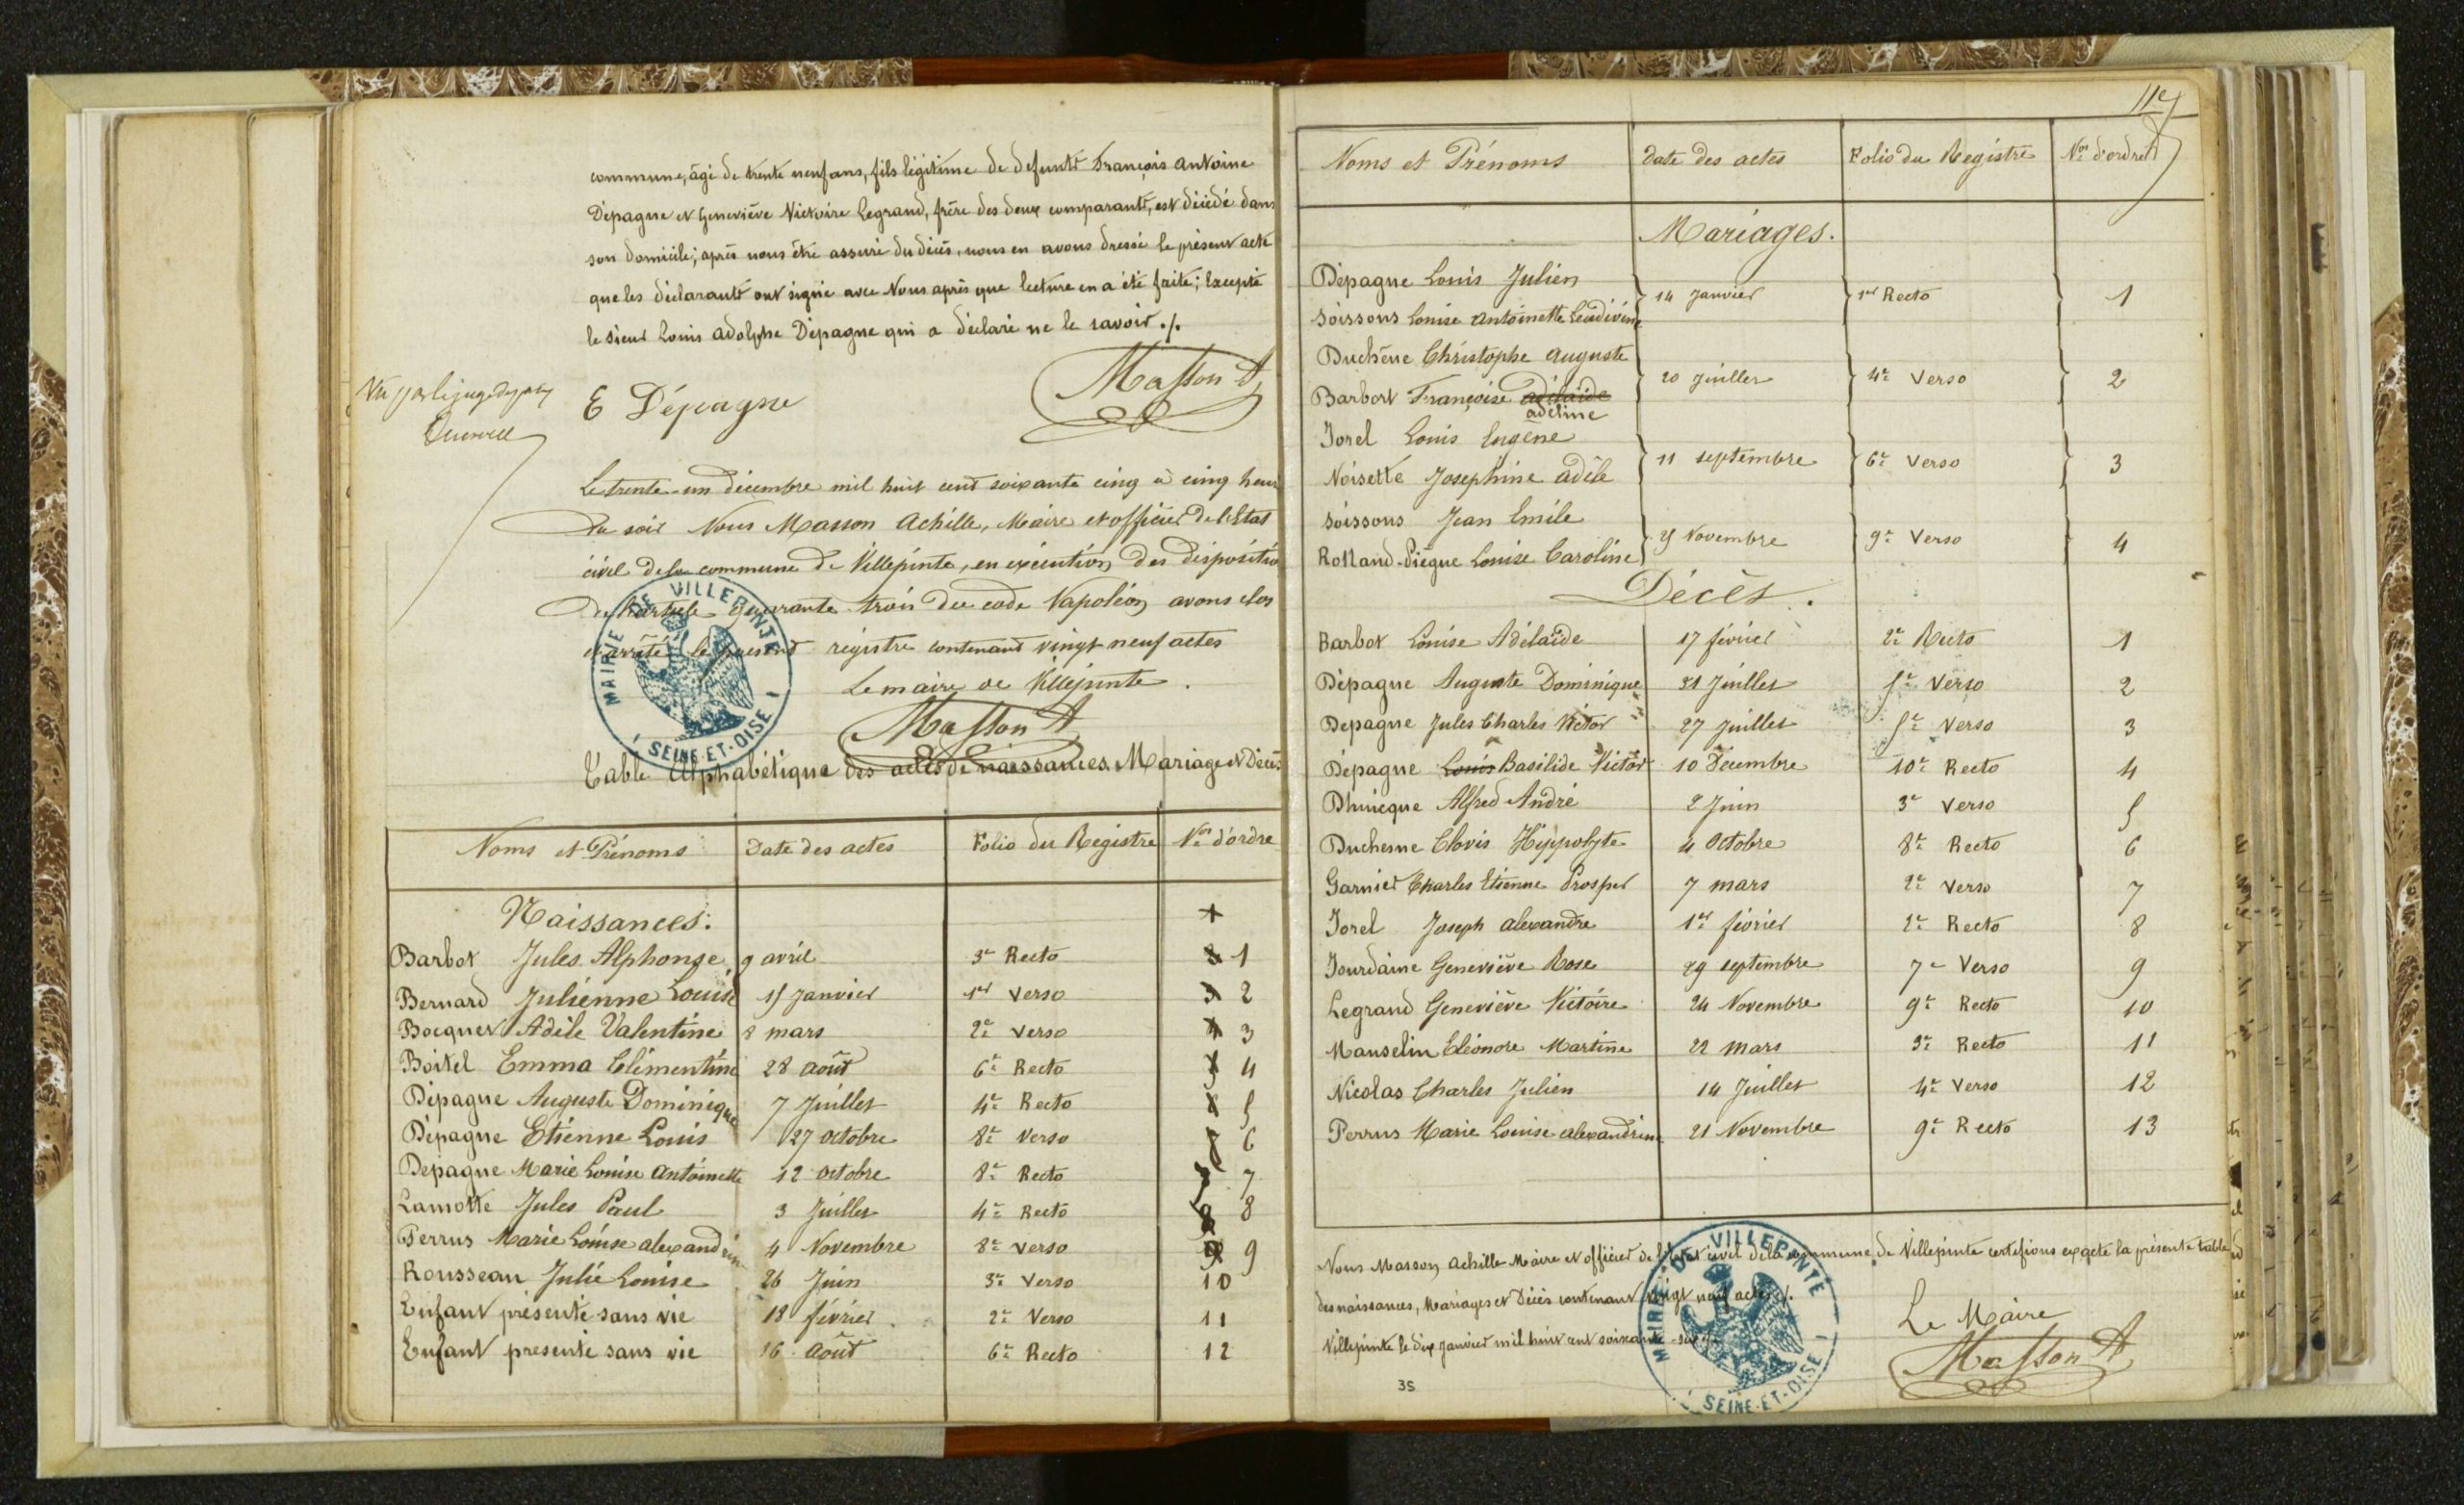 commune, âgé de trente neuf ans, fils légitime de defunts François antoine
Dépagne et Geneviève Victoire Legrand, frère des deux comparants, est décédé dans
son domicile; après nous être assuré du décès, nous en avons dressé le présent acte
que les déclarants ont signé avec Nous après que lecture en a été faite; Excepté
le sieur Louis adolphe Dépagne qui a déclaré ne le savoir ./.
Vu par le juge de paix
E Dépagne
Masson A
Le trente-un décembre mil huit cent soixante cinq à cinq heures
du soir Nous Masson Achille, Maire et officier de l'Etat
civil de la commune de Villepinte, en exécution des dispositio
de l'article quarante trois du code Napoléon avons clos
et arrêté le présent régistre contenant vingt neuf actes
Le maire de Villepinte.
Masson A
MAIRIE DE VILLEPINTE
SEINE-ET-OISE
Table Alphabétique des actes de naissances, Mariage et Décès
Noms et Prénoms Date des actes Folio du Registre Nos d'ordre
Naissances:
Barbot Jules Alphonse 9 avril 3e Recto 1
Bernard Julienne Louise 15 Janvier 1er Verso 2
Bocquet Adèle Valentine 8 mars 2e Verso 3
Boitel Emma Clémentine 28 août 6e Recto 4
Dépagne Auguste Dominique 7 Juillet 4e Recto 5
Dépagne Etienne Louis 27 octobre 8e Verso 6
Dépagne Marie Louise Antoinette 12 octobre 8e Recto 7
Lamotte Jules Paul 3 Juillet 4e Recto 8
Perrus Marie Louise alexandrine 4 Novembre 8e verso 9
Rousseau Julie Louise 26 Juin 3e Verso 10
Enfant présenté sans vie 18 février 2e Verso 11
Enfant presenté sans vie 16 août 6e Recto 12
11e
Noms et Prénoms Date des actes Folio du Registre Nos d'ordre
Mariages.
Dépagne Louis Julien
Soissons Louise Antoinette 14 Janvier 1er Recto 1
Duchêne Christophe Auguste
Barbot Françoise adélaïde 20 Juillet 4e Verso 2
adeline
Jorel Louis Eugène
Noisette Josephine adèle 11 septembre 6e Verso 3
Soissons Jean Emile
Rolland-Piègue Louise Caroline 25 Novembre 9e Verso 4
Décès.
Barbot Louise Adélaïde 17 février 2e Recto 1
Dépagne Auguste Dominique 31 Juillet 5e Verso 2
Dépagne Jules Charles Victor 27 Juillet 5e Verso 3
Dépagne Louis Basilide Victor 10 Décembre 10e Recto 4
Dhuicque Alfred André 2 Juin 3e Verso 5
Duchesne Clovis Hyppolyte 4 Octobre 8e Recto 6
Garnier Charles Etienne Prosper 7 mars 2e Verso 7
Jorel Joseph alexandre 1er février 2e Recto 8
Jourdaine Geneviève Rose 29 septembre 7e Verso 9
Legrand Geneviève Victoire 24 Novembre 9e Recto 10
Manselin Eléonore Martine 22 mars 3e Recto 11
Nicolas Charles Julien 14 Juillet 4e Verso 12
Perrus Marie Louise alexandrine 21 Novembre 9e Recto 13
Nous Masson Achille Maire et officier de l'Etat civil de la commune de Villepinte certifions exacte la présente table
des naissances, Mariages et Décès contenant vingt neuf actes ./.
Villepinte le dix Janvier mil huit cent soixante-six ./.
Le Maire
Masson A
MAIRIE DE VILLEPINTE
SEINE-ET-OISE
35